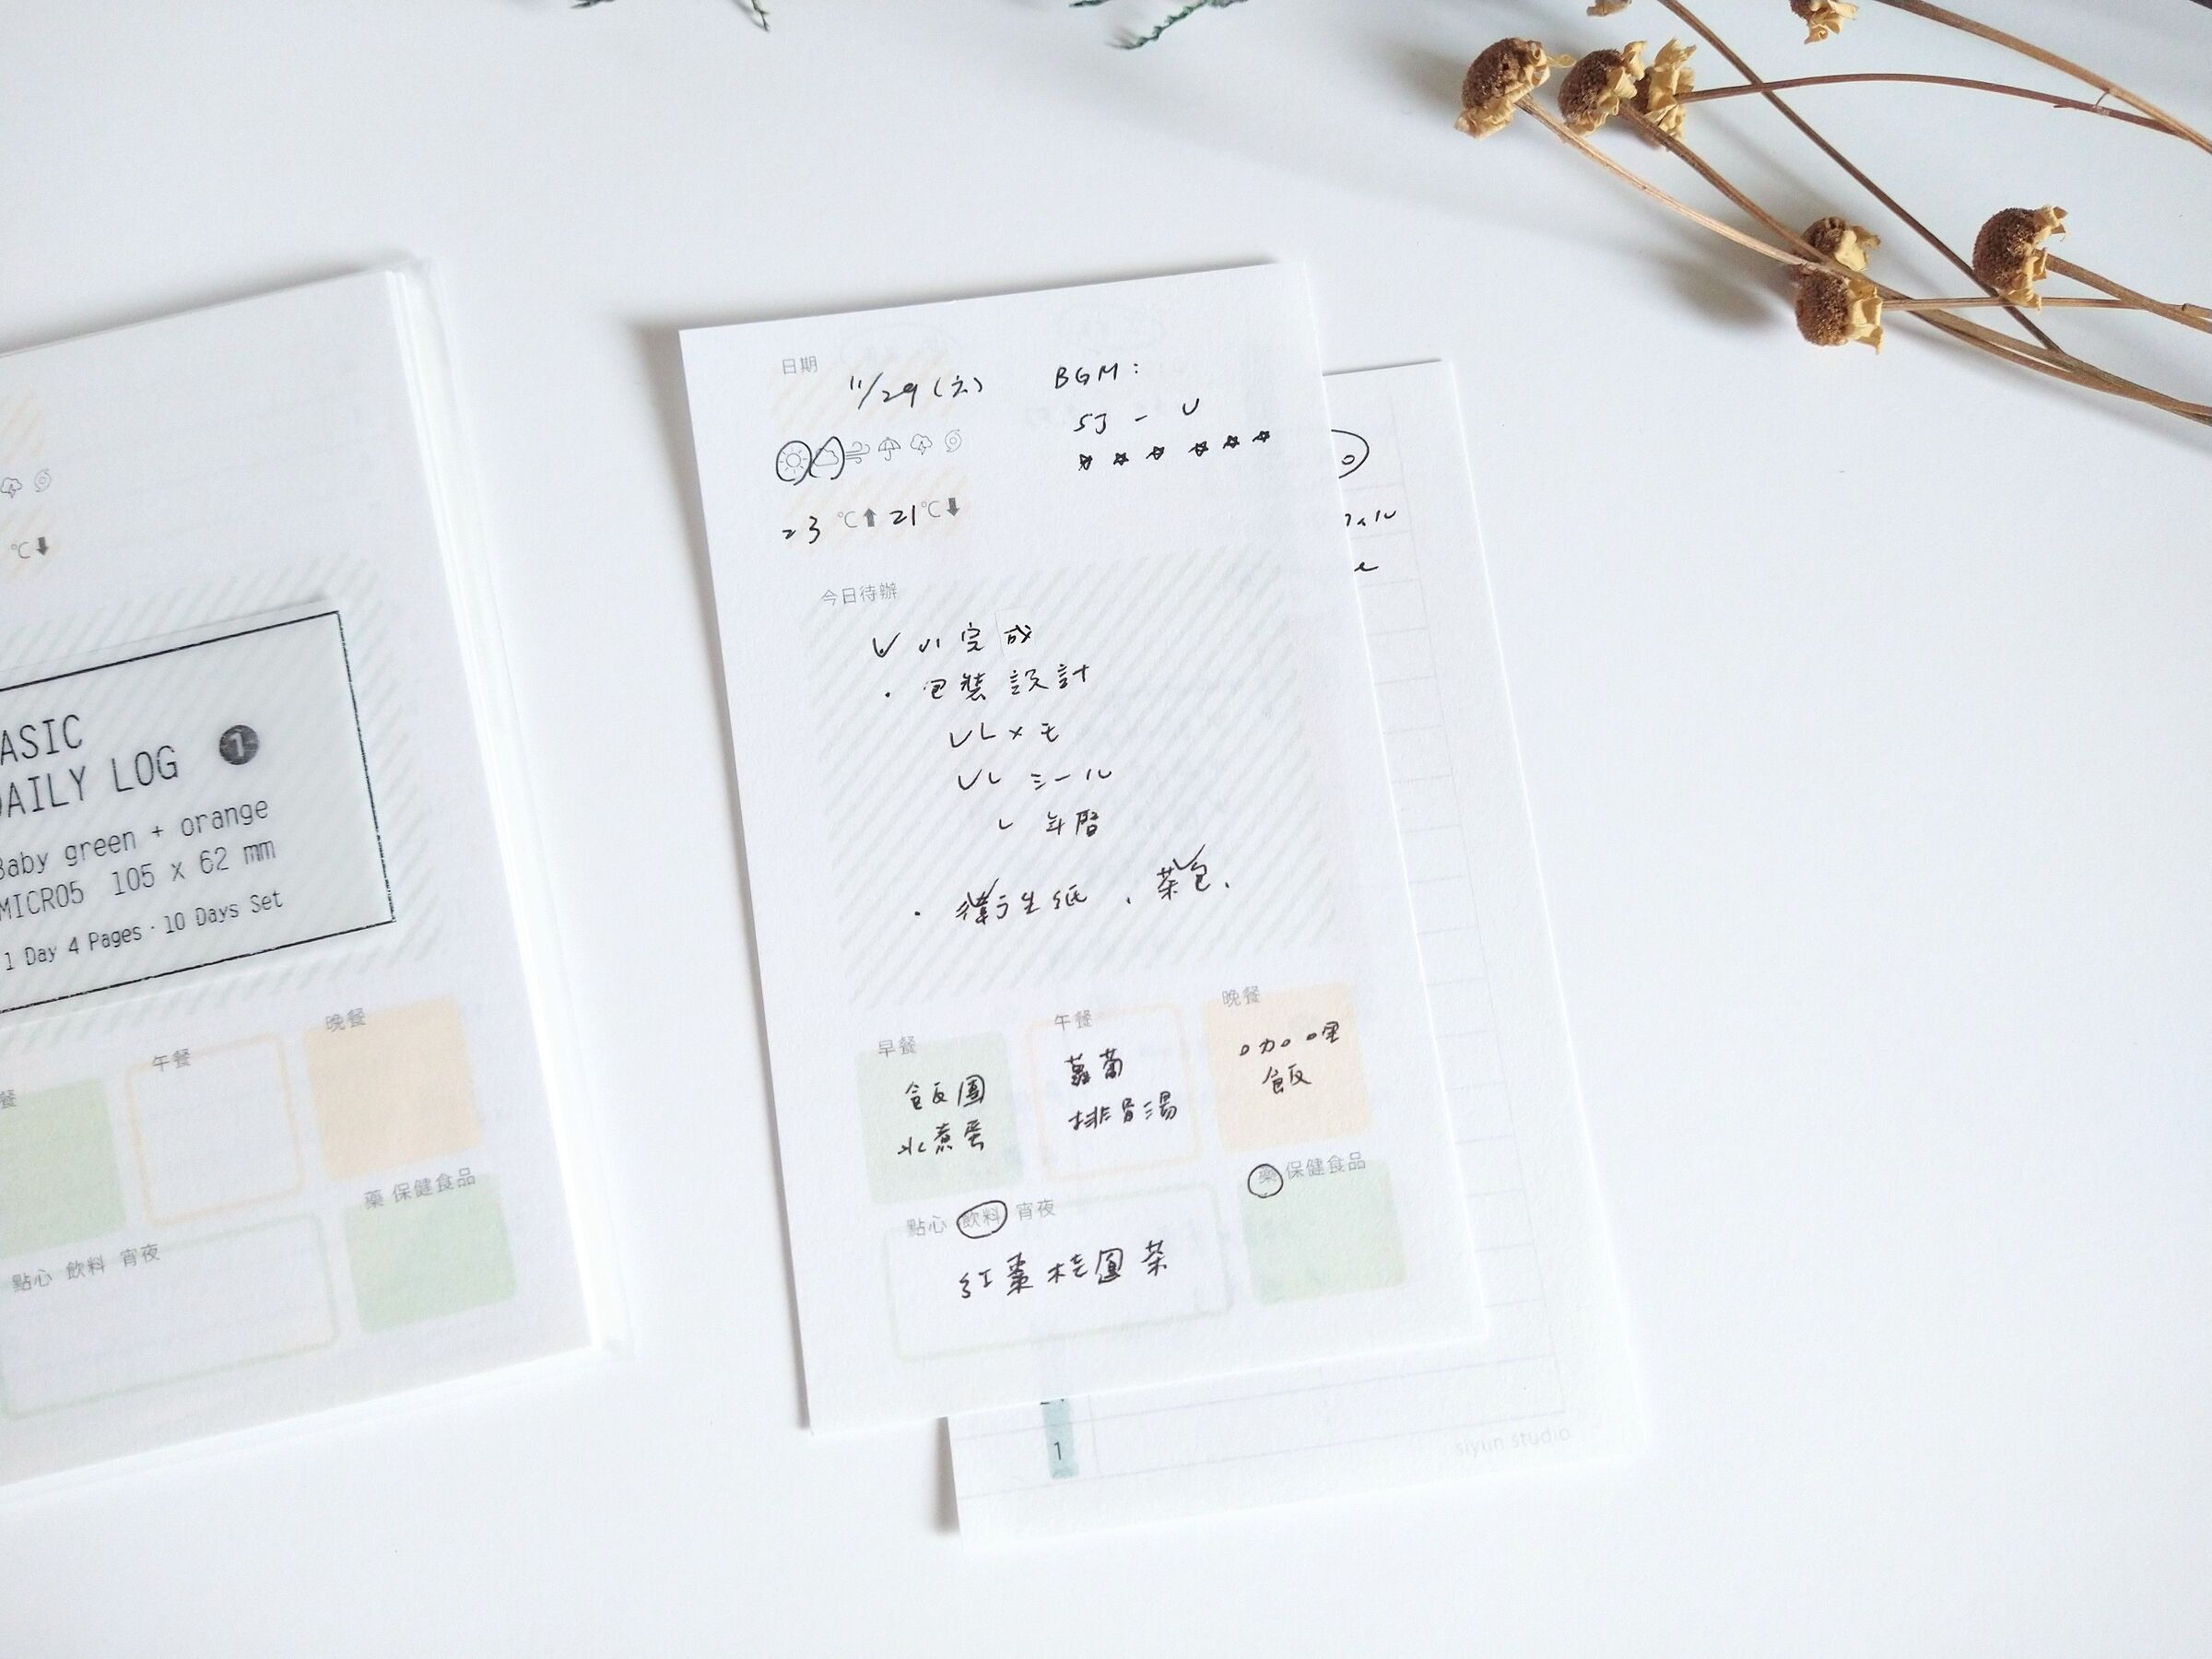 ℃⬇
ASIC
DAILY LOG 1
Baby green + orange
MICRO5 105 x 62 mm
1 Day 4 Pages · 10 Days Set
餐
午餐
晚餐
點心 飲料 宵夜
藥 保健食品
日期
11/29 (六)
BGM:
SJ - U
★ ★ ★ ★ ★ ★
23 ℃⬆ 21℃⬇
今日待辦
完成
包裝設計
メモ
シール
年曆
衛生紙、茶包、
早餐
飯團
水煮蛋
午餐
蘿蔔
排骨湯
晚餐
咖哩
飯
點心 飲料 宵夜
紅棗桂圓茶
藥 保健食品
1
siyun studio